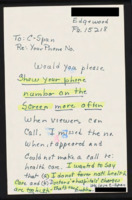 Edgewood
Pa. 15218
To: C-Span
Re: Your Phone No.
Would you please
Show your phone
number on the
Screen more often
When viewers can
Call. I missed the no.
When it appeared and
Could not make a call re:
health care. I wanted to say
that (1) I do not favor nat'l health
Care and (2) Doctors' & hospitals' charges
are too high.